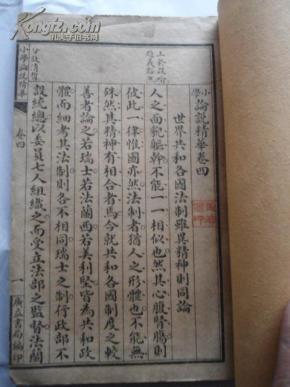 小學論說精華卷四
世界共和各國法制雖異精神則同論
人之面貌軀幹不能一一相似也然其心腹腎腸則
彼此一律惟國亦然法制者猶人之形體也不能無
殊然其精神有相合者焉今就共和各國制度之較
善者論之若瑞士若法蘭西若美利堅皆為共和政
體而細考其法制則各不相同瑞士之制行政部不
設統總以委員七人組織之而受立法部之監督法蘭
上套說起
小學論說精華
卷四
一
廣益書局編印